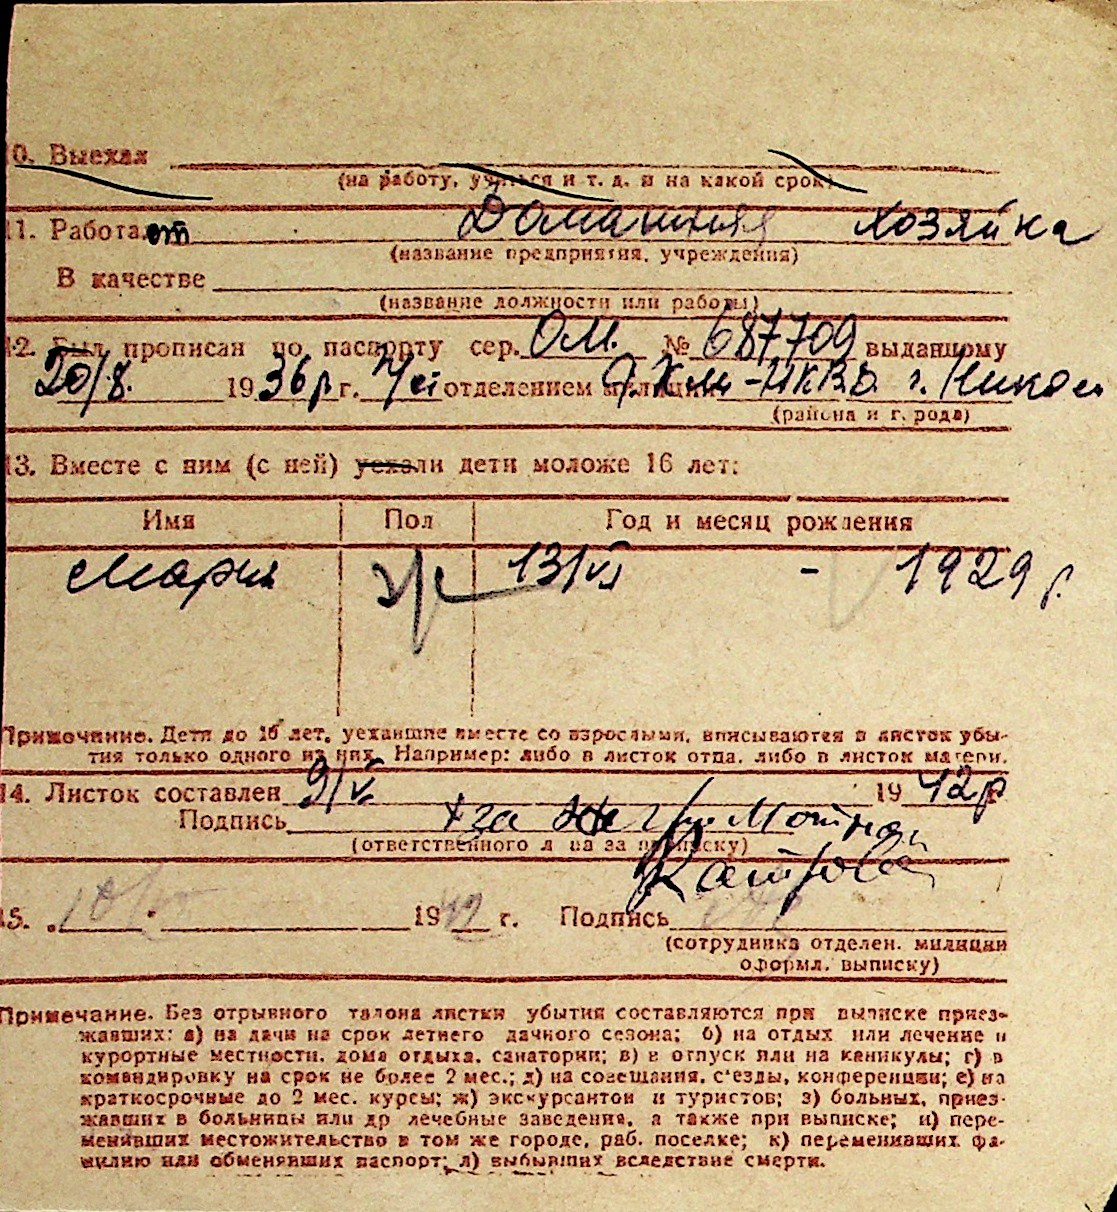 10. Выехал
(на работу, учиться и т. д. и на какой срок)
11. Работает Домашняя хозяйка
(название предприятия, учреждения)
В качестве
(название должности или работы)
12. Был прописан по паспорту сер. ОМ. № 687709 выданному
20/8. 1936 г. г. отделением милиции НКВД г.
(района и города)
13. Вместе с ним (с ней) уехали дети моложе 16 лет:
Имя Пол Год и месяц рождения
Мария ж 13/VI - 1929 г.
Примечание. Дети до 16 лет, уехавшие вместе со взрослыми, вписываются в листок убы-
тия только одного из них. Например: либо в листок отца, либо в листок матери.
14. Листок составлен 9/V 1942 г
Подпись за
(ответственного лица за прописку)
15. 10/V 1942 г. Подпись
(сотрудника отделен. милиции
оформл. выписку)
Примечание. Без отрывного талона листки убытия составляются при выписке приез-
жавших: а) на дачи на срок летнего дачного сезона; б) на отдых или лечение в
курортные местности, дома отдыха, санатории; в) в отпуск или на каникулы; г) в
командировку на срок не более 2 мес.; д) на совещания, с'езды, конференции; е) на
краткосрочные до 2 мес. курсы; ж) экскурсантов и туристов; з) больных, приез-
жавших в больницы или др лечебные заведения, а также при выписке; и) пере-
менивших местожительство в том же городе, раб. поселке; к) переменивших фа-
милию или обменявших паспорт; л) выбывших вследствие смерти.